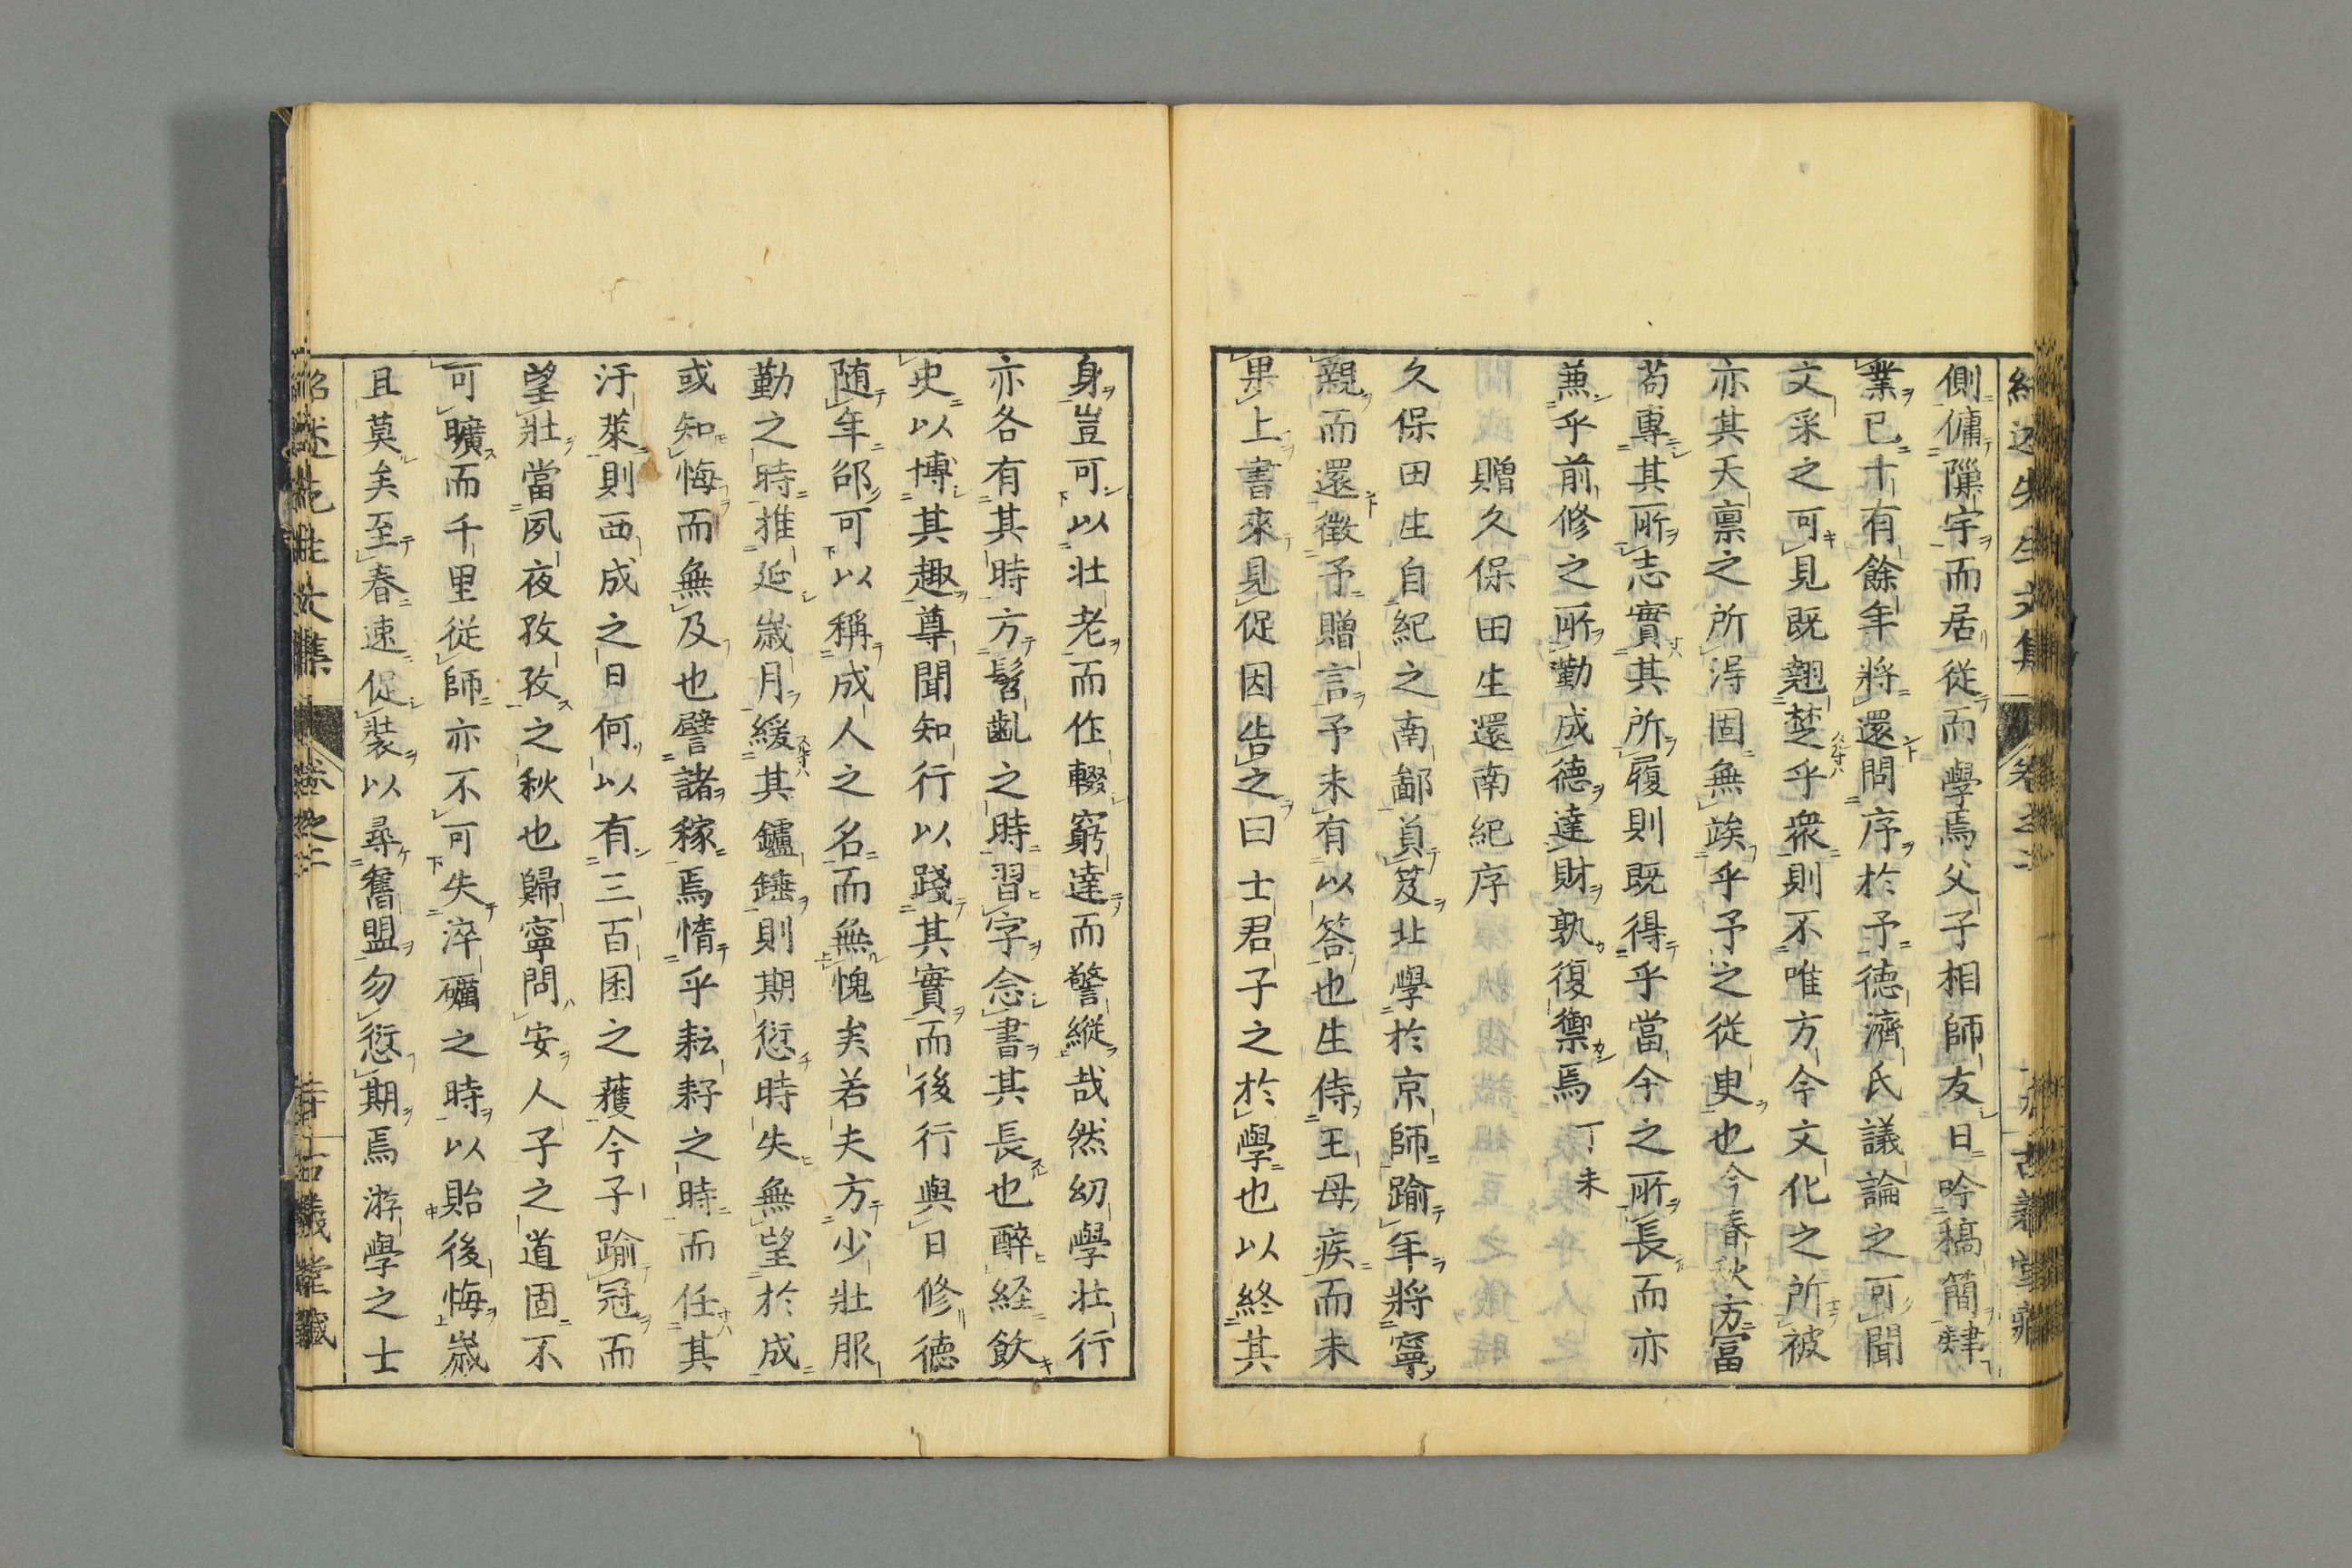 側傭隟宇而居從而學焉父子相師友日吟稿簡肄
業已十有餘年將還問序於予德濟氏議論之可聞
文采之可見既翹楚乎衆則不唯方今文化之所被
亦其天禀之所得固無竢乎予之從臾也今春秋方富
苟專其所志實其所履則既得乎當今之所長而亦
兼乎前修之所勤成德達財孰復禦焉 丁未
贈久保田生還南紀序
久保田生自紀之南鄙負笈北學於京師踰年將寧
親而還徵予贈言予未有以答也生侍王母疾而未
果上書來見促因告之曰士君子之於學也以終其
身豈可以壯老而作輟窮達而警縱哉然幼學壯行
亦各有其時方髫齓之時習字念書其長也醉経飲
史以博其趣尊聞知行以踐其實而後行與日修德
随年邵可以稱成人之名而無愧矣若夫方少壯服
勤之時推延歳月緩其鑪錘則期愆時失無望於成
或知悔而無及也譬諸稼焉惰乎耘耔之時而任其
汙萊則西成之日何以有三百囷之蘿今子踰冠而
望壯當夙夜孜孜之秋也歸寧問安人子之道固不
可曠而千里從師亦不可失淬礪之時以貽後悔歳
且莫矣至春速促裝以尋舊盟勿愆期焉游學之士
卷之二
古義堂藏